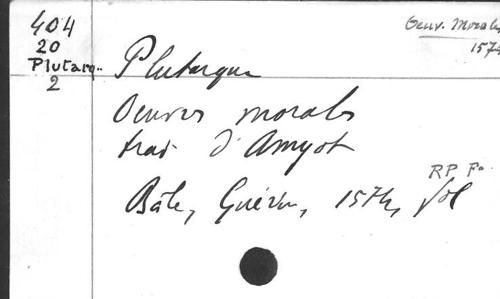 404
20
Plutarq..
2
Oeuv. Morales
1574
Plutarque
Oeuvres morales
trad d'Amyot
Bâle, Guérin, 1574, fol
RP Fo.